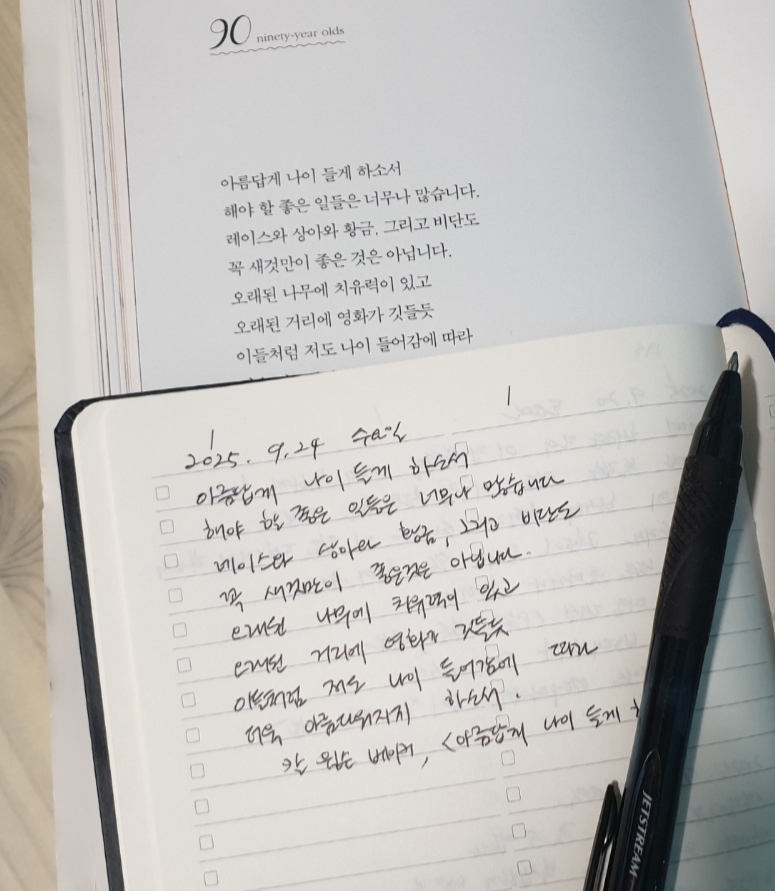 90 ninety-year olds
아름답게 나이 들게 하소서
해야 할 좋은 일들은 너무나 많습니다.
레이스와 상아와 황금, 그리고 비단도
꼭 새것만이 좋은 것은 아닙니다.
오래된 나무에 치유력이 있고
오래된 거리에 영화가 깃들듯
이들처럼 저도 나이 들어감에 따라
2025. 9. 24 수요일
아름답게 나이 들게 하소서
해야 할 좋은 일들은 너무나 많습니다
레이스와 상아와 황금, 그리고 비단도
꼭 새것만이 좋은것은 아닙니다.
오래된 나무에 치유력이 있고
오래된 거리에 영화가 깃들듯
이들처럼 저도 나이 들어감에 따라
더욱 아름다워지지 하소서.
칼 윌슨 베이커, <아름답게 나이 들게
JETSTREAM